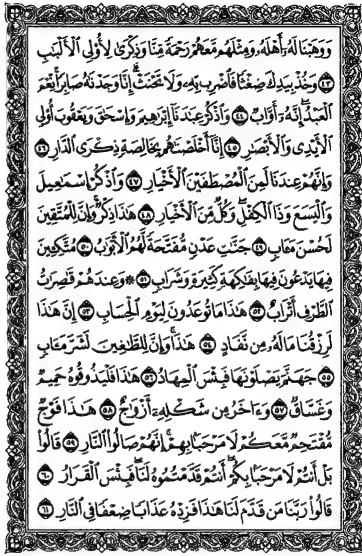 وَوَهَبْنَا لَهُۥٓ أَهْلَهُۥ وَمِثْلَهُم مَّعَهُمْ رَحْمَةً مِّنَّا وَذِكْرَىٰ لِأُو۟لِى ٱلْأَلْبَٰبِ
٤٣ وَخُذْ بِيَدِكَ ضِغْثًا فَٱضْرِب بِّهِۦ وَلَا تَحْنَثْ إِنَّا وَجَدْنَٰهُ صَابِرًا نِّعْمَ
ٱلْعَبْدُ إِنَّهُۥٓ أَوَّابٌ ٤٤ وَٱذْكُرْ عِبَٰدَنَآ إِبْرَٰهِيمَ وَإِسْحَٰقَ وَيَعْقُوبَ أُو۟لِى
ٱلْأَيْدِى وَٱلْأَبْصَٰرِ ٤٥ إِنَّآ أَخْلَصْنَٰهُم بِخَالِصَةٍ ذِكْرَى ٱلدَّارِ ٤٦
وَإِنَّهُمْ عِندَنَا لَمِنَ ٱلْمُصْطَفَيْنَ ٱلْأَخْيَارِ ٤٧ وَٱذْكُرْ إِسْمَٰعِيلَ
وَٱلْيَسَعَ وَذَا ٱلْكِفْلِ وَكُلٌّ مِّنَ ٱلْأَخْيَارِ ٤٨ هَٰذَا ذِكْرٌ وَإِنَّ لِلْمُتَّقِينَ
لَحُسْنَ مَـَٔابٍ ٤٩ جَنَّٰتِ عَدْنٍ مُّفَتَّحَةً لَّهُمُ ٱلْأَبْوَٰبُ ٥٠ مُتَّكِـِٔينَ
فِيهَا يَدْعُونَ فِيهَا بِفَٰكِهَةٍ كَثِيرَةٍ وَشَرَابٍ ٥١ ۞ وَعِندَهُمْ قَٰصِرَٰتُ
ٱلطَّرْفِ أَتْرَابٌ ٥٢ هَٰذَا مَا تُوعَدُونَ لِيَوْمِ ٱلْحِسَابِ ٥٣ إِنَّ هَٰذَا
لَرِزْقُنَا مَا لَهُۥ مِن نَّفَادٍ ٥٤ هَٰذَا وَإِنَّ لِلطَّٰغِينَ لَشَرَّ مَـَٔابٍ
٥٥ جَهَنَّمَ يَصْلَوْنَهَا فَبِئْسَ ٱلْمِهَادُ ٥٦ هَٰذَا فَلْيَذُوقُوهُ حَمِيمٌ
وَغَسَّاقٌ ٥٧ وَءَاخَرُ مِن شَكْلِهِۦٓ أَزْوَٰجٌ ٥٨ هَٰذَا فَوْجٌ
مُّقْتَحِمٌ مَّعَكُمْ لَا مَرْحَبًۢا بِهِمْ إِنَّهُمْ صَالُوا۟ ٱلنَّارِ ٥٩ قَالُوا۟
بَلْ أَنتُمْ لَا مَرْحَبًۢا بِكُمْ أَنتُمْ قَدَّمْتُمُوهُ لَنَا فَبِئْسَ ٱلْقَرَارُ ٦٠
قَالُوا۟ رَبَّنَا مَن قَدَّمَ لَنَا هَٰذَا فَزِدْهُ عَذَابًا ضِعْفًا فِى ٱلنَّارِ ٦١